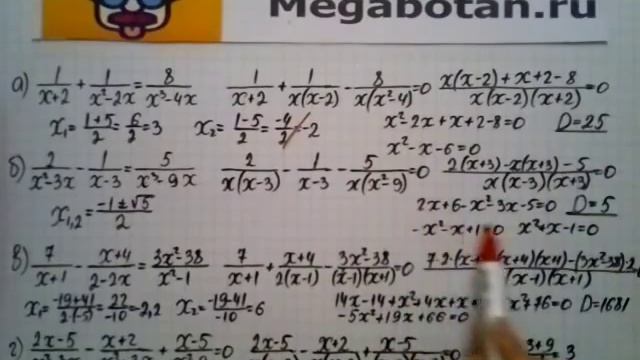 Megabotan.ru
а) 1/(x+2) + 1/(x²-2x) = 8/(x³-4x)   1/(x+2) + 1/(x(x-2)) - 8/(x(x²-4)) = 0   (x(x-2)+x+2-8)/(x(x-2)(x+2)) = 0
x₁ = (1+5)/2 = 6/2 = 3   x₂ = (1-5)/2 = -4/2 = -2   x²-2x+x+2-8=0   D=25
x²-x-6=0
б) 2/(x²-3x) - 1/(x-3) = 5/(x³-9x)   2/(x(x-3)) - 1/(x-3) - 5/(x(x²-9)) = 0   (2(x+3)-x(x+3)-5)/(x(x-3)(x+3)) = 0
x₁,₂ = (-1±√5)/2   2x+6-x²-3x-5=0   D=5
-x²-x+1=0   x²+x-1=0
в) 7/(x+1) - (x+4)/(2-2x) = (3x²-38)/(x²-1)   7/(x+1) + (x+4)/(2(x-1)) - (3x²-38)/((x-1)(x+1)) = 0
(x-1)(x+1)
x₁ = (-19+41)/(2(-5)) = 22/-10 = -2,2   x₂ = (-19-41)/-10 = 6   14x-14+x²+4x+x   +76=0   D=1681
-5x²+19x+66=0
г) (2x-5)   (x+2)   (x-5)   =0   (2x-5)   (x+2)   (x-5)